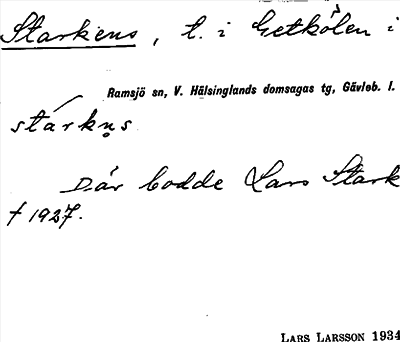 Starkens, t. i Getkölen i
Ramsjö sn, V. Hälsinglands domsagas tg, Gävleb. l.
stárkn̥s
Där bodde Lars Stark
† 1927.
LARS LARSSON 1934